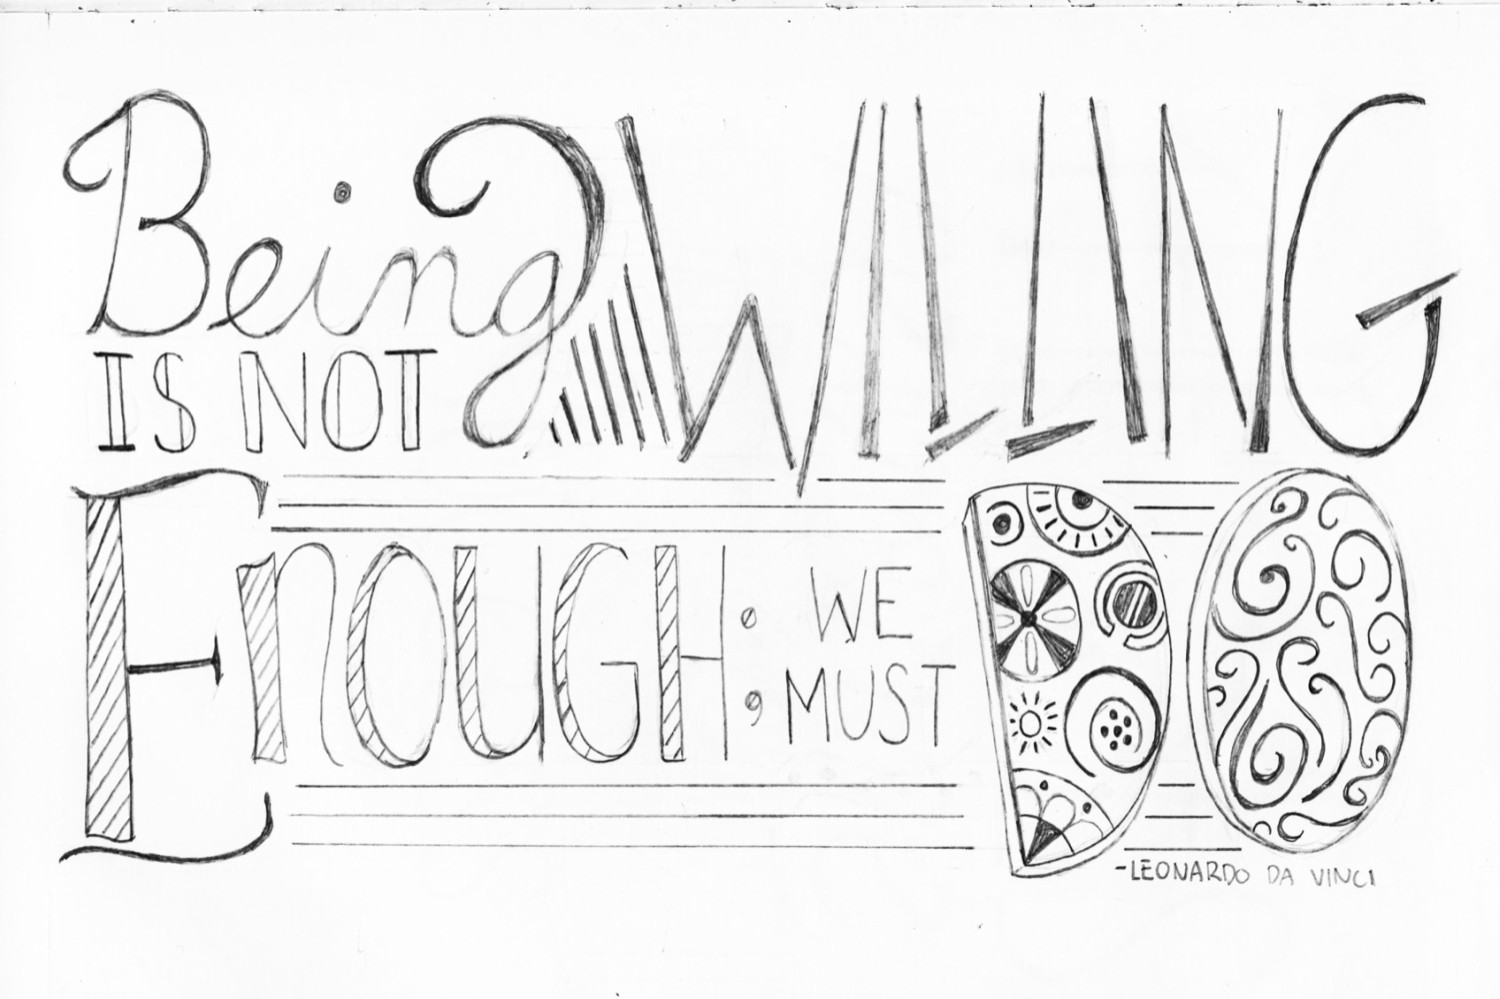 Being WILLING
IS NOT
ENOUGH; WE
MUST DO
-LEONARDO DA VINCI